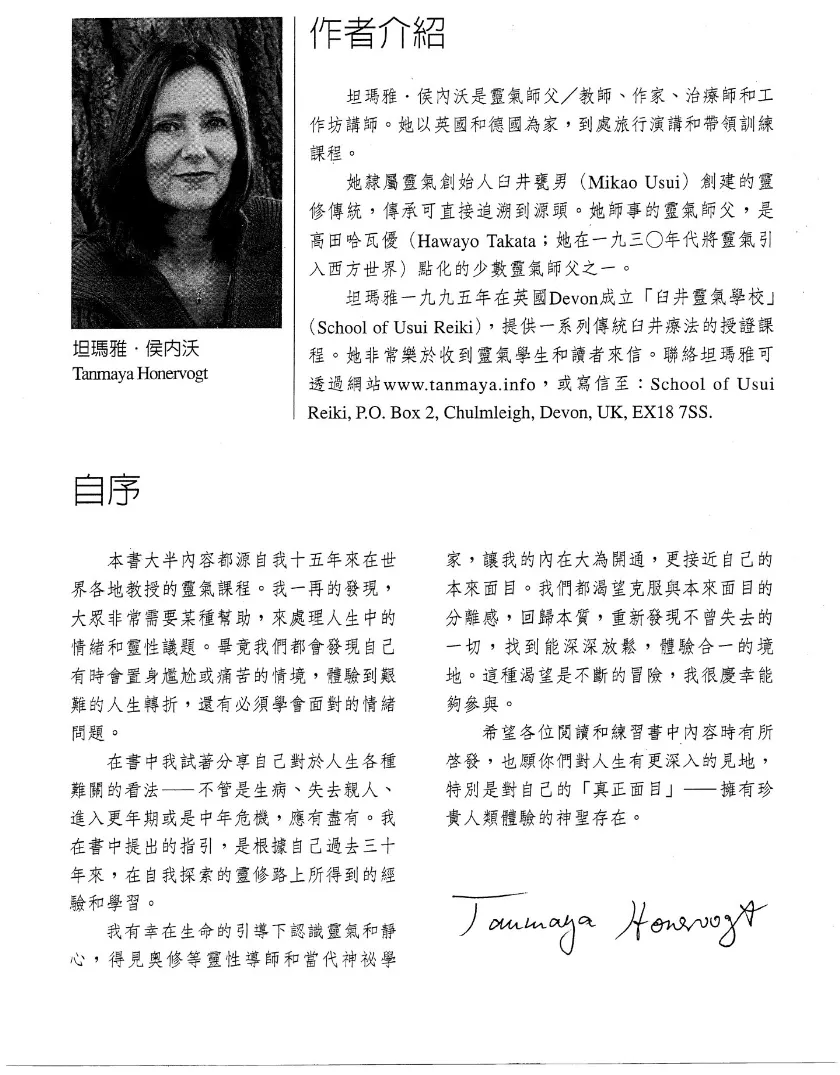 作者介紹
坦瑪雅·侯內沃是靈氣師父／教師、作家、治療師和工
作坊講師。她以英國和德國為家，到處旅行演講和帶領訓練
課程。
她隸屬靈氣創始人臼井甕男（Mikao Usui）創建的靈
修傳統，傳承可直接追溯到源頭。她師事的靈氣師父，是
高田哈瓦優（Hawayo Takata；她在一九三〇年代將靈氣引
入西方世界）點化的少數靈氣師父之一。
坦瑪雅一九九五年在英國Devon成立「臼井靈氣學校」
（School of Usui Reiki），提供一系列傳統臼井療法的授證課
程。她非常樂於收到靈氣學生和讀者來信。聯絡坦瑪雅可
透過網站www.tanmaya.info，或寫信至：School of Usui
Reiki, P.O. Box 2, Chulmleigh, Devon, UK, EX18 7SS.
坦瑪雅·侯內沃
Tanmaya Honervogt
自序
本書大半內容都源自我十五年來在世
界各地教授的靈氣課程。我一再的發現，
大眾非常需要某種幫助，來處理人生中的
情緒和靈性議題。畢竟我們都會發現自己
有時會置身尷尬或痛苦的情境，體驗到艱
難的人生轉折，還有必須學會面對的情緒
問題。
在書中我試著分享自己對於人生各種
難關的看法——不管是生病、失去親人、
進入更年期或是中年危機，應有盡有。我
在書中提出的指引，是根據自己過去三十
年來，在自我探索的靈修路上所得到的經
驗和學習。
我有幸在生命的引導下認識靈氣和靜
心，得見奧修等靈性導師和當代神祕學
家，讓我的內在大為開通，更接近自己的
本來面目。我們都渴望克服與本來面目的
分離感，回歸本質，重新發現不曾失去的
一切，找到能深深放鬆，體驗合一的境
地。這種渴望是不斷的冒險，我很慶幸能
夠參與。
希望各位閱讀和練習書中內容時有所
啓發，也願你們對人生有更深入的見地，
特別是對自己的「真正面目」——擁有珍
貴人類體驗的神聖存在。
Tanmaya Honervogt